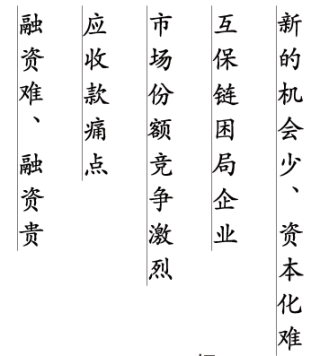 融资难、融资贵
应收款痛点
市场份额竞争激烈
互保链困局企业
新的机会少、资本化难